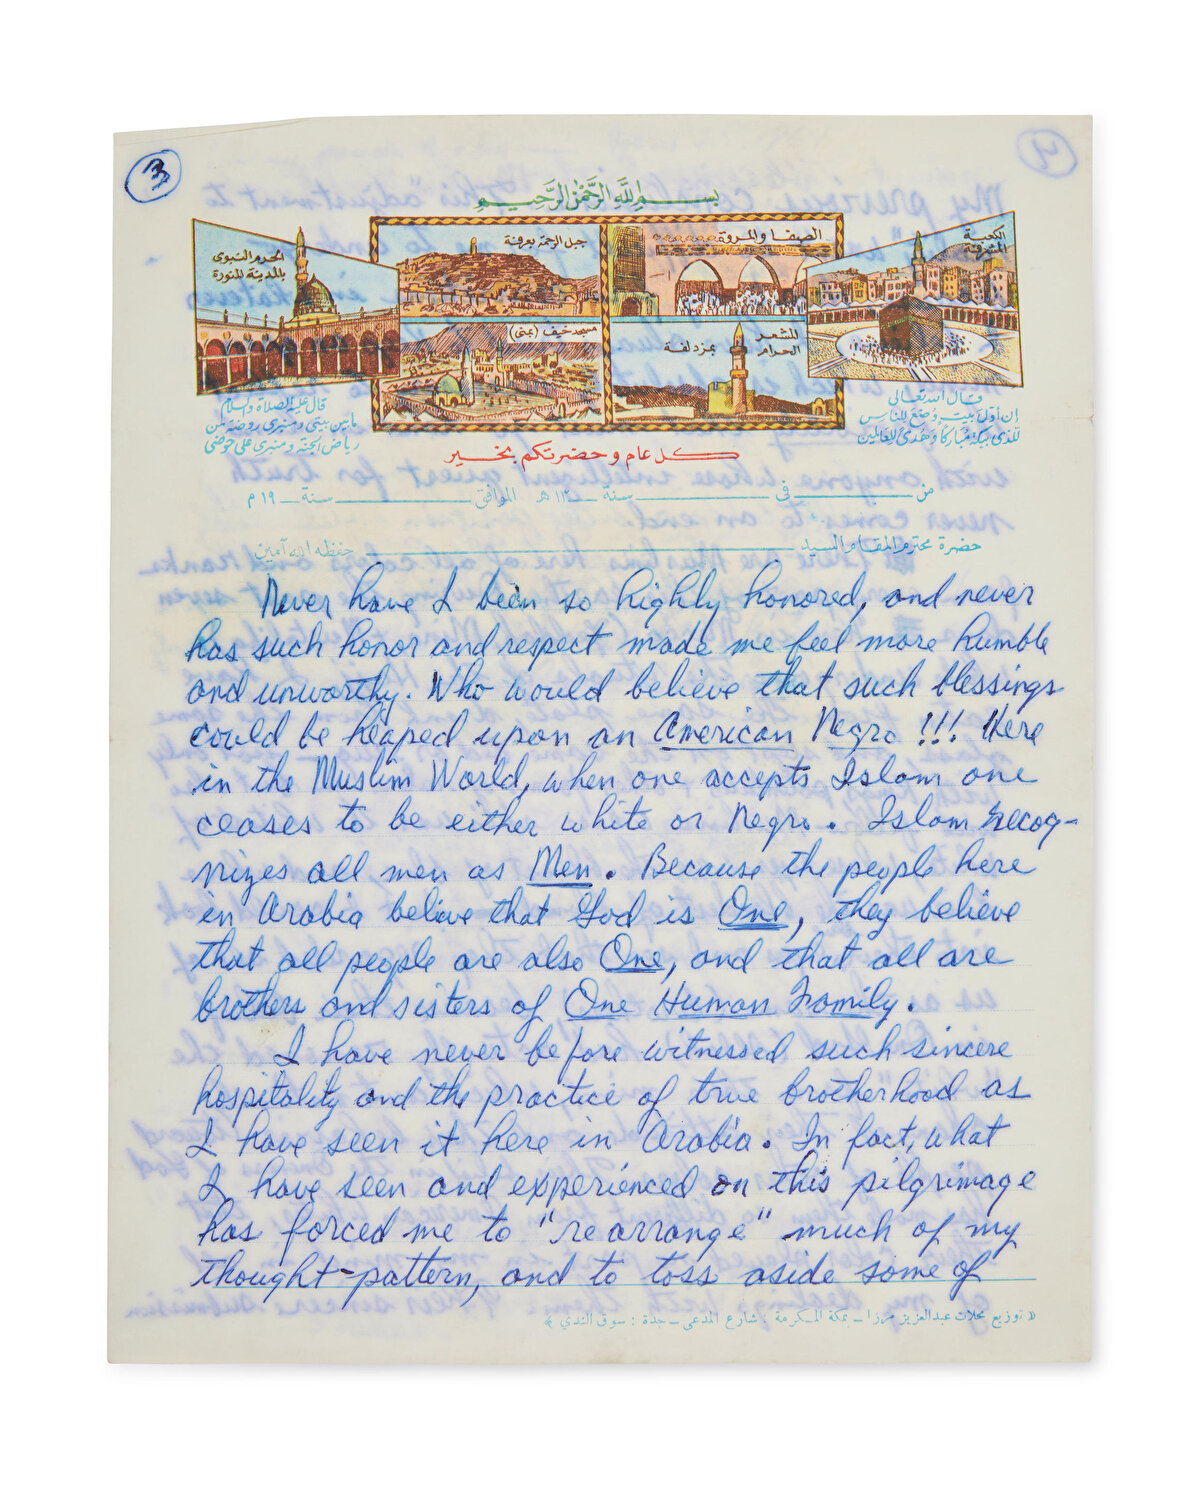 3
بسم الله الرحمن الرحيم
الحرم النبوي
بالمدينة المنورة
جبل الرحمة بعرفة
الصفا والمروة
الكعبة
المشرفة
مسجد خيف (بمنى)
المشعر
الحرام بمزدلفة
قال عليه الصلاة والسلام
ما بين بيتي ومنبري روضة من
رياض الجنة ومنبري على حوضي
قال الله تعالى
إن أول بيت وضع للناس
للذي ببكة مباركا وهدى للعالمين
كل عام وحضرتكم بخير
من ــ في ــ سنة ــ ١٣ هـ الموافق ــ سنة ــ ١٩ م
حضرة محترم المقام السيد ــ حفظه الله آمين
Never have I been so highly honored, and never
has such honor and respect made me feel more humble
and unworthy. Who would believe that such blessings
could be heaped upon an American Negro !!! Here
in the Muslim World, when one accepts Islam one
ceases to be either white or Negro. Islam recog-
nizes all men as Men. Because the people here
in Arabia believe that God is One, they believe
that all people are also One, and that all are
brothers and sisters of One Human Family.
I have never before witnessed such sincere
hospitality and the practice of true brotherhood as
I have seen it here in Arabia. In fact, what
I have seen and experienced on this pilgrimage
has forced me to "rearrange" much of my
thought-pattern, and to toss aside some of
« توزيع محلات عبدالعزيز مرزا ــ بمكة المكرمة : شارع المدعى ــ جدة : سوق الندي »